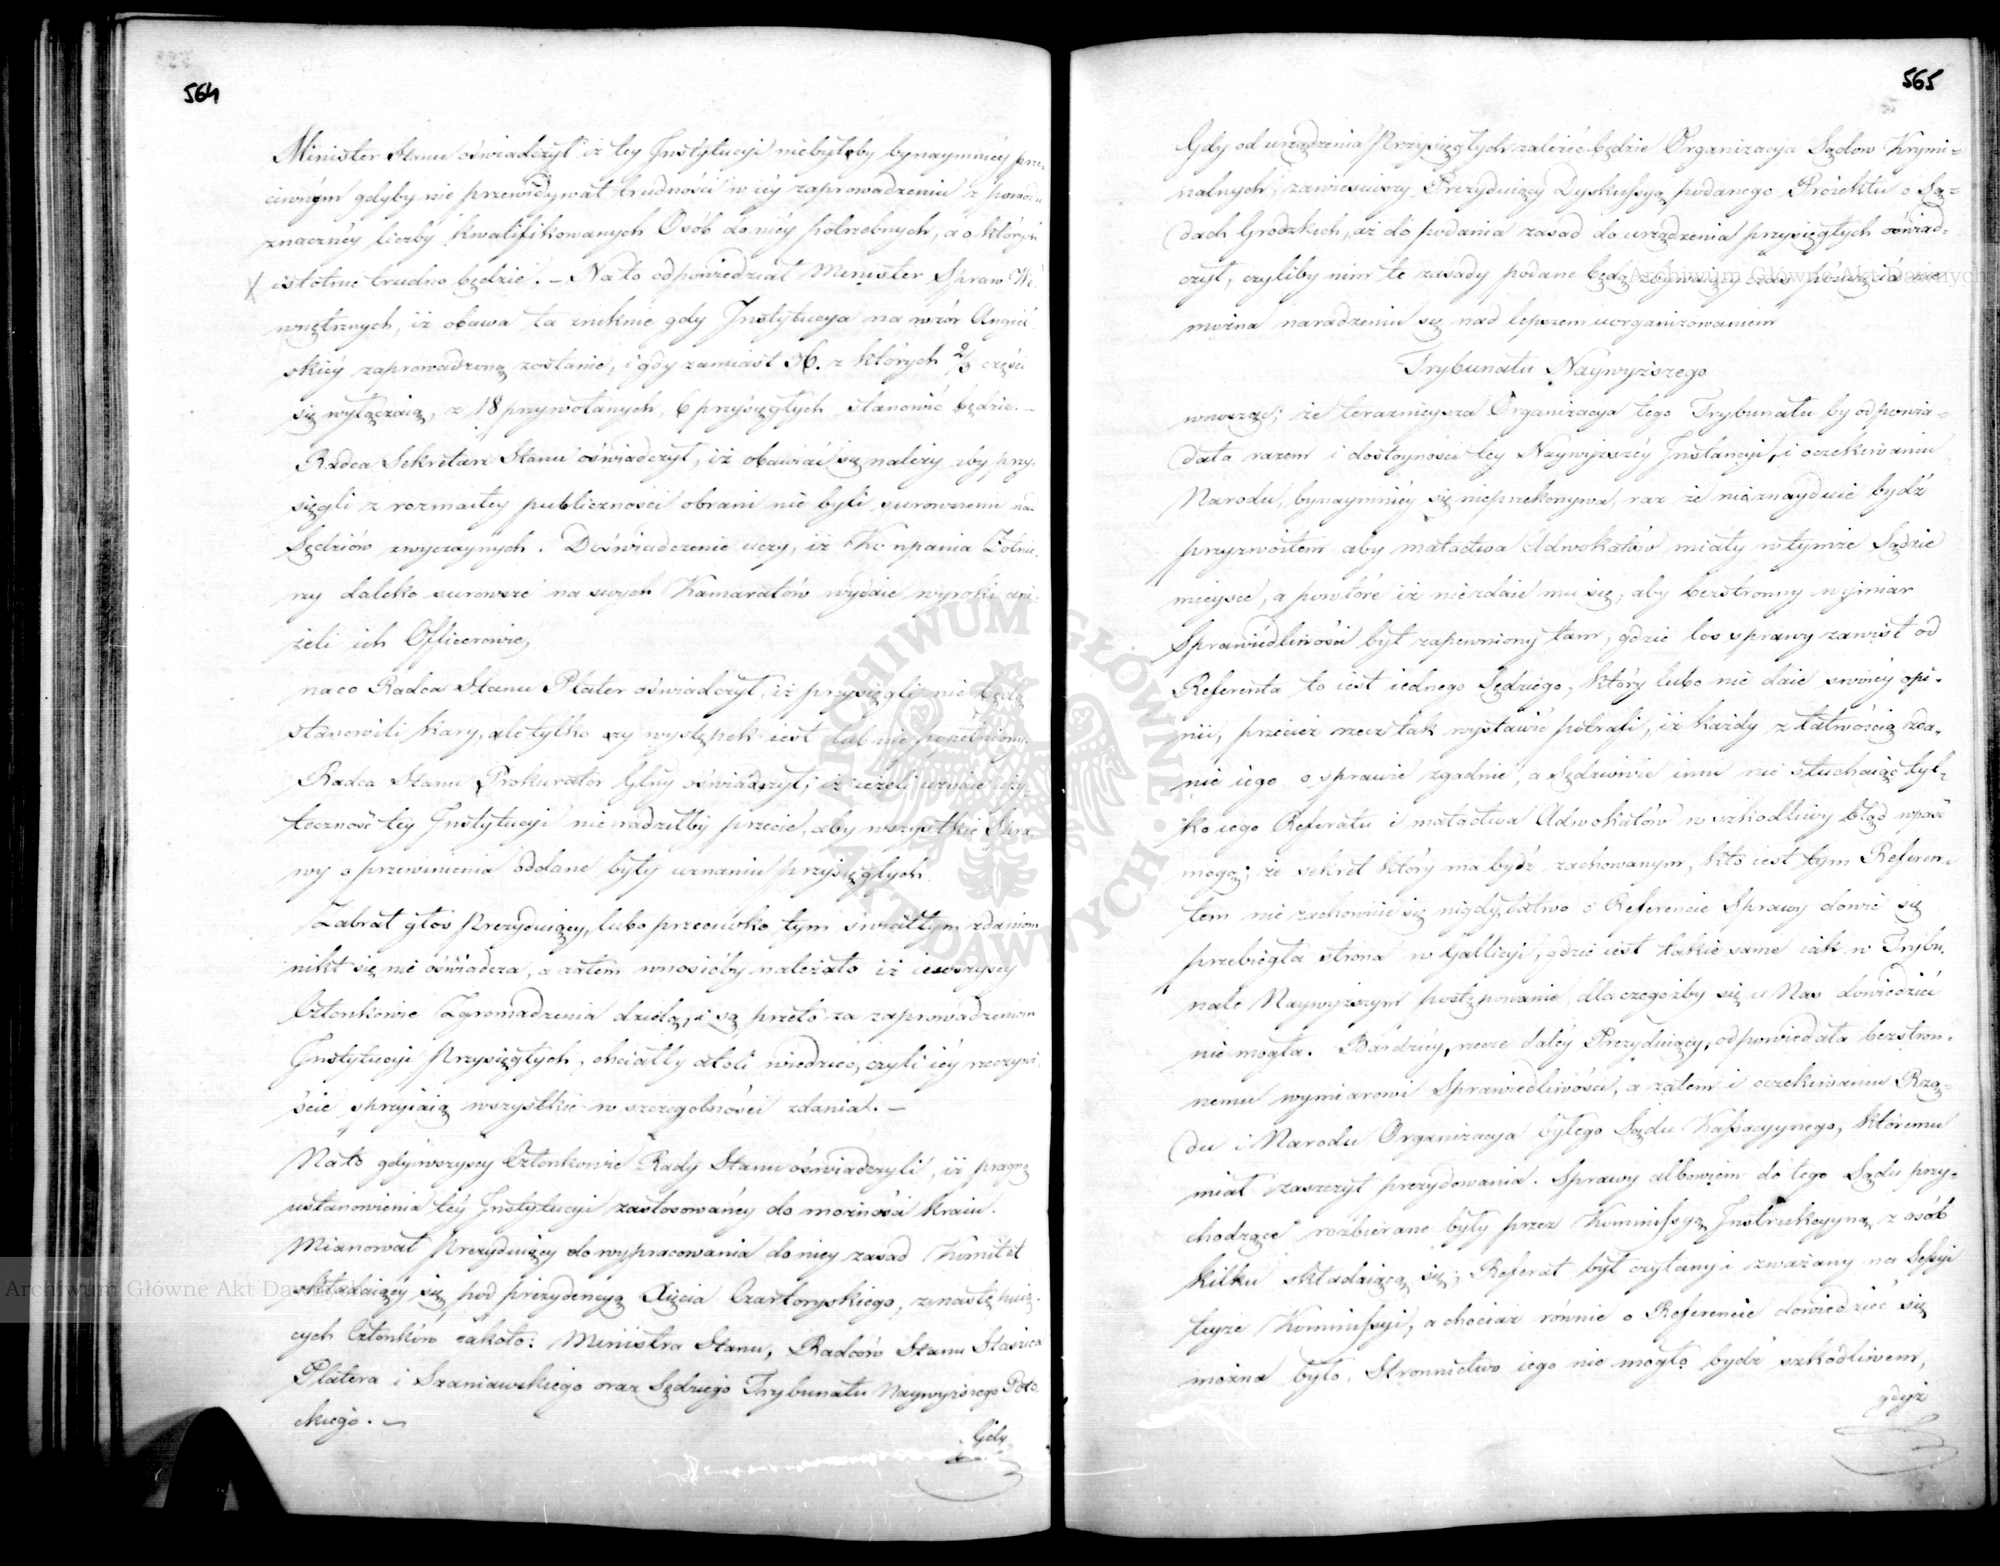 564
Minister Stanu oświadczył iż tey Instytucyi niebyłoby bynaymniéy prze-
ciwnym gdyby nie przewidywał trudności w iéy zaprowadzeniu z powodu
znacznéy liczby kwalifikowanych Osób do niéy potrzebnych, a o których
istotnie trudno będzie. – Na to odpowiedział Minister Spraw We-
wnętrznych, iż obawa ta zniknie gdy Instytucya na wzór Angiel-
skiéy zaprowadzoną zostanie, i gdy zamiast 36. z których 2/3 części
się wyłączaią, z 18 przywołanych, 6 przysięgłych stanowić będzie. –
Radca Sekretarz Stanu oświadczył, iż obawiać się należy aby przy-
sięgli z rozmaitey publiczności obrani nie byli surowszemi nad
Sędziów zwyczaynych. Doświadczenie uczy, iż Kompania Żołnie-
rzy daleko surowsze na swych Kamaratów wydaie wyroki ani-
żeli ich Officerowie,
naco Radca Stanu Plater oświadczył, iż przysięgli nie będą
stanowili kary, ale tylko czy występek iest lub nie popełniony.
Radca Stanu Prokurator Glny oświadczył; iż ieżeli uznaie uży-
teczność tey Instytucyi nie radziłby przecie, aby wszystkie Spra-
wy o przewinienia oddane były uznaniu przysięgłych.
Zabrał głos Prezyduiący, lubo przeciwko tym światłym zdaniom
nikt się nie oświadcza, a zatem wnosićby należało iż ie wszyscy
Członkowie Zgromadzenia dzielą, i są przeto za zaprowadzeniem
Instytucyi Przysięgłych, chciałby atoli wiedzieć, czyli iéy rzeczywi-
ście sprzyiaią wszystkie w szczególności zdania. –
Na to gdy wszyscy Członkowie Rady Stanu oświadczyli, iż pragną
ustanowienia téy Instytucyi zastosowanéy do możności kraiu.
Mianował Prezyduiący do wypracowania do niey zasad Komitet
składaiący się pod prezydencyą Xięcia Czartoryskiego, z nastę puią-
cych Członków iakoto: Ministra Stanu, Radców Stanu Staszica
Platera i Szaniawskiego oraz Sędziego Trybunału Naywyższego Poto-
ckiego. –
Gdy
565
Gdy od urządzenia Przysięgłych zależeć będzie Organizacya Sądów Krymi-
nalnych, zawiesiwszy Prezyduiący Dyskussyą podanego Proiektu o Są-
dach Grodzkich, aż do podania zasad do urządzenia przysięgłych oświad-
czył, czyliby nim te zasady podane będą zbywaiący czas poświęcić nie
można naradzeniu się nad lepszem uorganizowaniem
Trybunału Naywyższego
wnosząc; że teraznieysza Organizacya tego Trybunału by odpowia-
dała razem i dostoyności tey Naywyższéy Instancyi, i oczekiwaniu
Narodu, bynaymniéy się nieprzekonywa, raz że nieznayduie bydź
przyzwoitem aby matactwa Adwokatów miały w tymże Sądzie
mieysce, a powtóre iż niezdaie mu się, aby bezstronny wymiar
Sprawiedliwości był zapewniony tam, gdzie los sprawy zawisł od
Referenta to iest iednego Sędziego, który lubo nie daie swoiéy opi-
nii, przecież rzecz tak wystawić potrafi, iż każdy z łatwością zda-
nie iego o sprawie zgadnie, a Sędziowie inni nie słuchaiąc tyl-
ko iego Referatu i matactwa Adwokatów w szkodliwy błąd wpaść
mogą; że sekret który ma bydź zachowanym, kto iest tym Referen-
tem nie zachowuie się nigdy, łatwo o Referencie Sprawy dowie się
przebiegła strona w Gallicyi, gdzie iest takie same iak w Trybu-
nale Naywyższym postępowanie, dlaczegożby się u Nas dowiedzieć
nie mogła. Bardziey, rzecze daléy Prezyduiący, odpowiedała bezstron-
nemu wymiarowi Sprawiedliwości, a zatem i oczekiwaniu Rzą-
du i Narodu Organizacya byłego Sądu Kassacyynego, któremu
miał zaszczyt prezydowania. Sprawy albowiem do tego Sądu przy-
chodzące rozbierane były przez Kommissyą Instrukcyyną z osób
kilku składaiącą się; Referat był czytany i zważany na Sessyi
teyże Kommissyi, a chociaż równie o Referencie dowiedzieć się
można było. Stronnictwo iego nie mogło bydź szkodliwem,
gdyż
Archiwum Główne Akt Dawnych